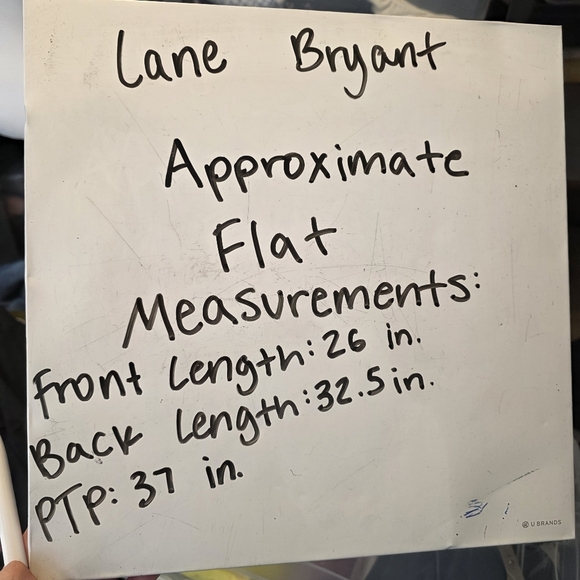 Lane Bryant
Approximate
Flat
Measurements:
Front Length: 26 in.
Back Length: 32.5 in.
PTP: 37 in.
U BRANDS